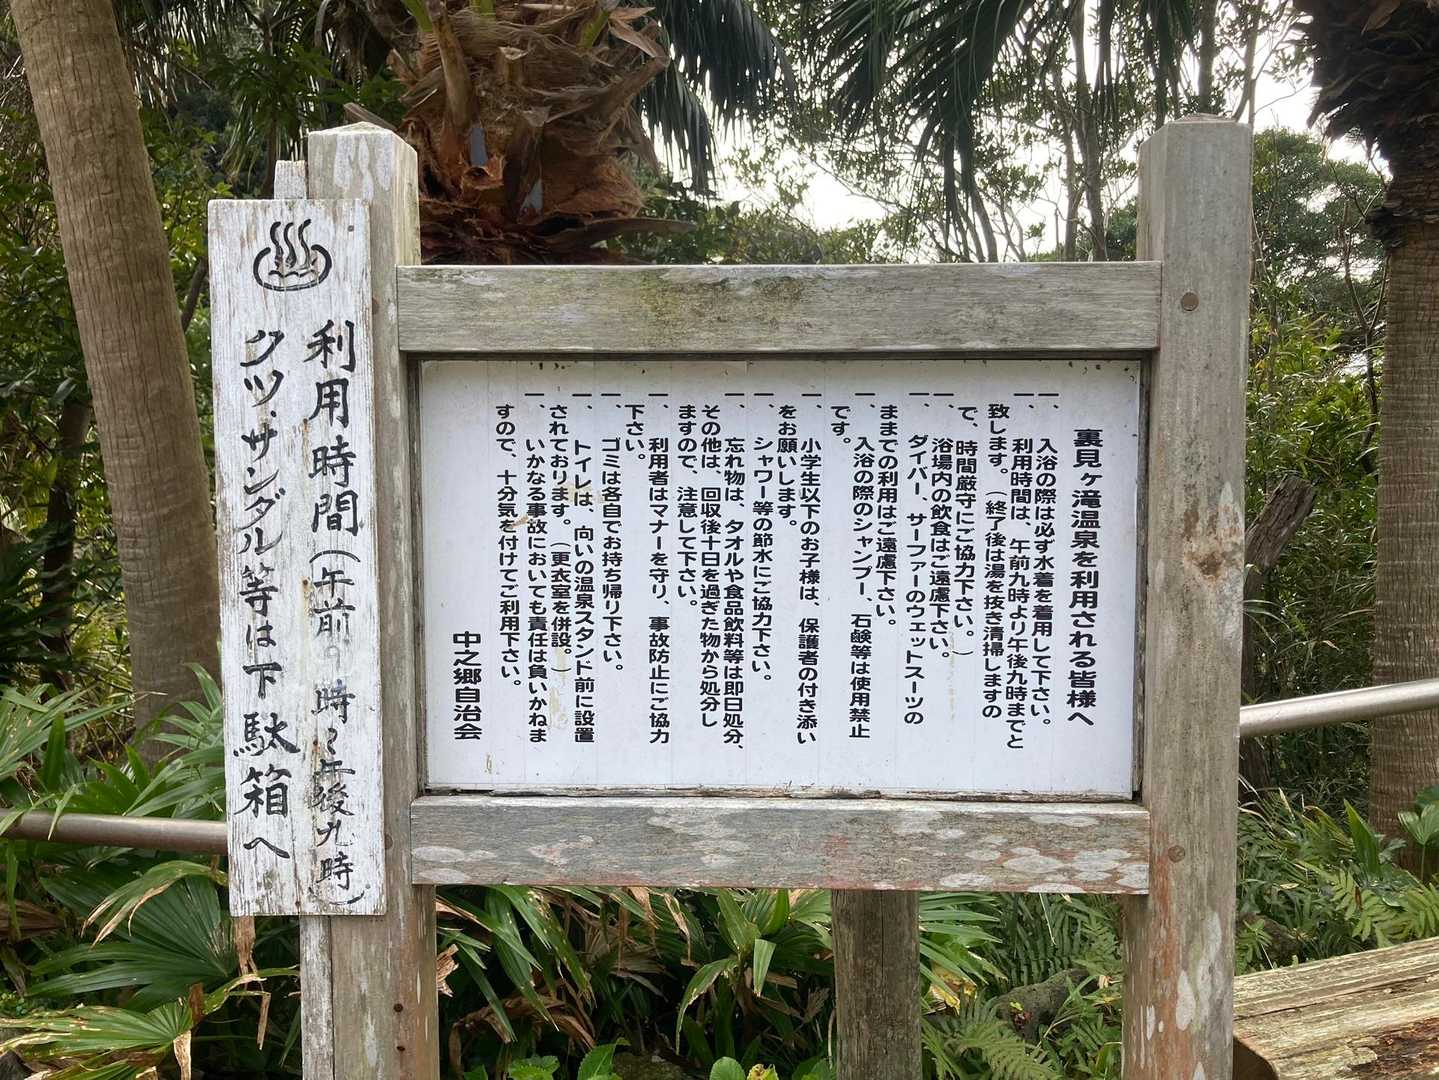 裏見ヶ滝温泉を利用される皆様へ
一、入浴の際は必ず水着を着用して下さい。
一、利用時間は、午前九時より午後九時までと
致します。（終了後は湯を抜き清掃しますの
で、時間厳守にご協力下さい。）
一、浴場内の飲食はご遠慮下さい。
一、ダイバー、サーファーのウェットスーツの
ままでの利用はご遠慮下さい。
一、入浴の際のシャンプー、石鹸等は使用禁止
です。
一、小学生以下のお子様は、保護者の付き添い
をお願いします。
一、シャワー等の節水にご協力下さい。
一、忘れ物は、タオルや食品飲料等は即日処分、
その他は、回収後十日を過ぎた物から処分し
ますので、注意して下さい。
一、利用者はマナーを守り、事故防止にご協力
下さい。
一、ゴミは各自でお持ち帰り下さい。
一、トイレは、向いの温泉スタンド前に設置
されております。（更衣室を併設。）
一、いかなる事故においても責任は負いかねま
すので、十分気を付けてご利用下さい。
中之郷自治会
利用時間（午前九時〜午後九時）
クツ・サンダル等は下駄箱へ